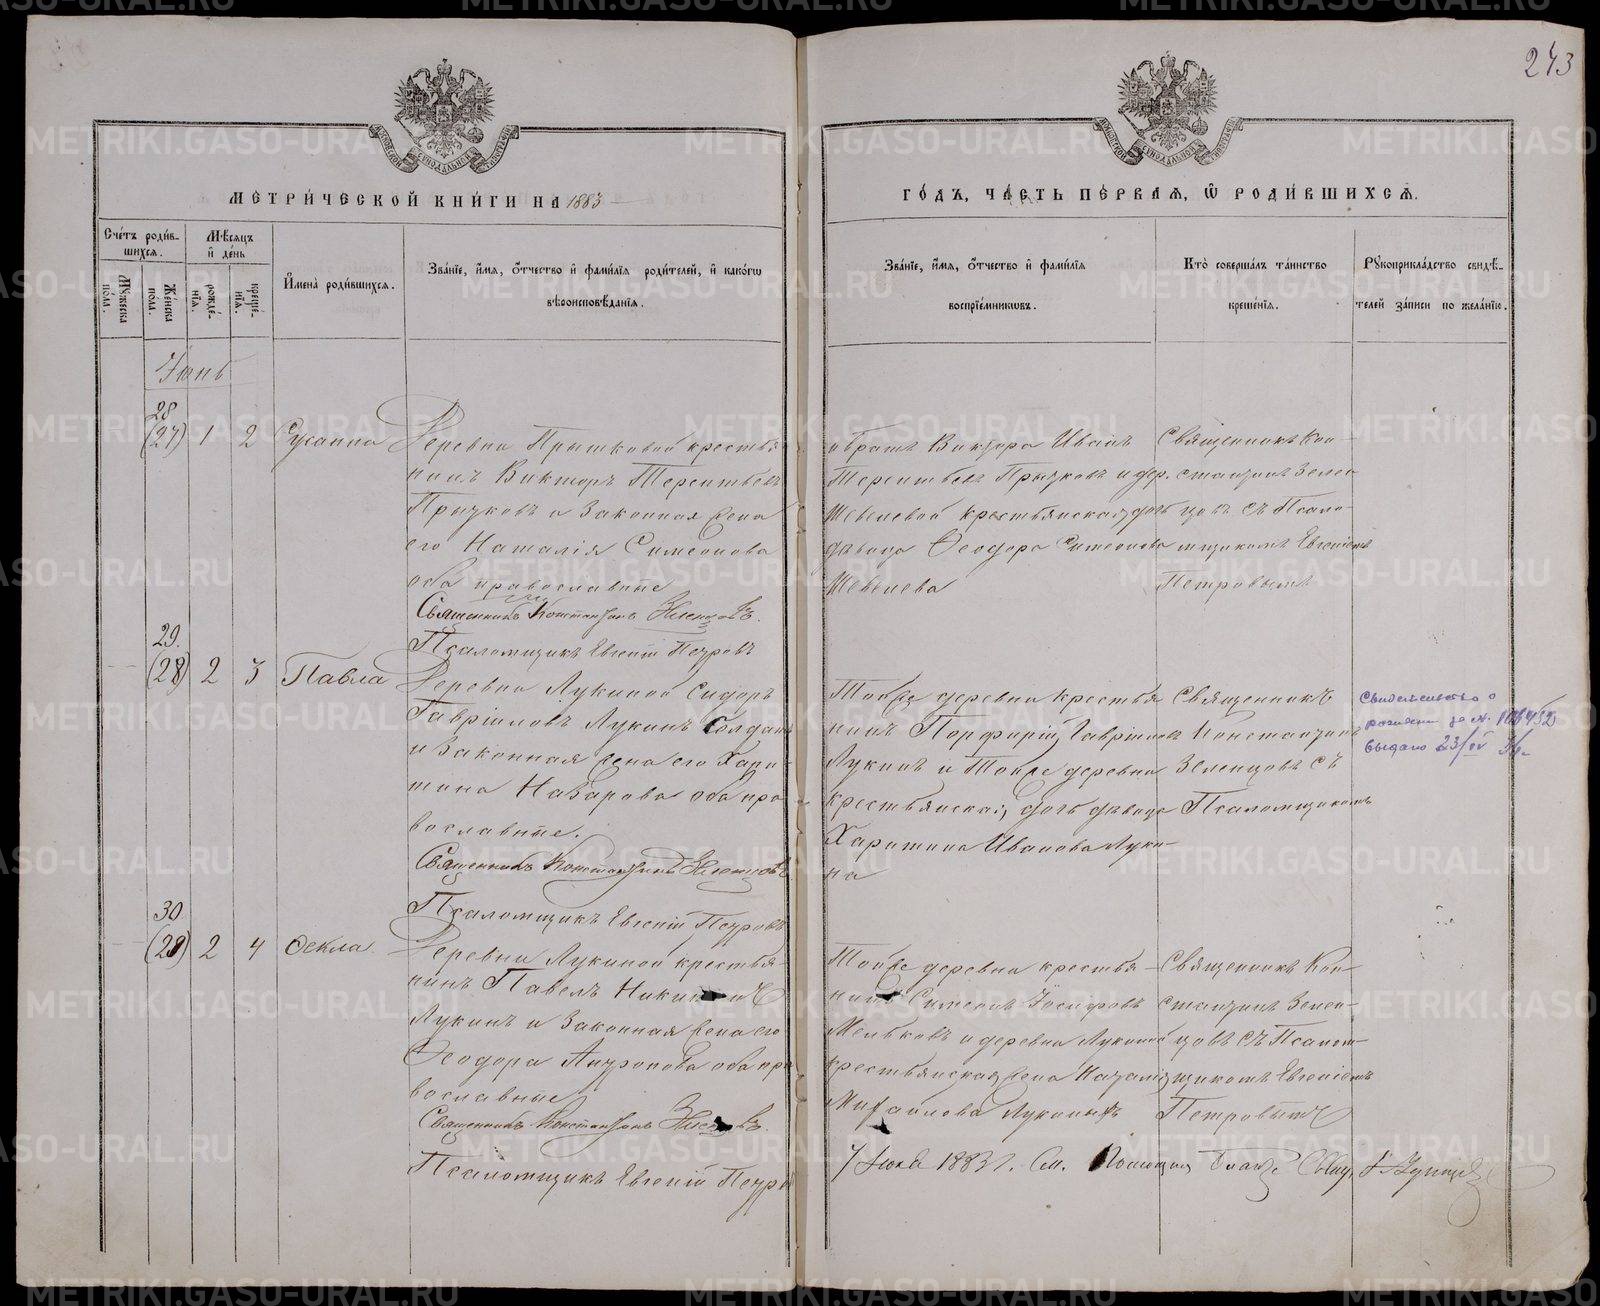 243
МЕТРИ́ЧЕСКОЙ КНИ́ГИ НА 1883
ГО́ДЪ, ЧА́СТЬ ПЕ́РВАЯ, Ѽ РОДИ́ВШИХСЯ.
Сче́тъ роди́в-
шихся.
Мужеска пола.
Же́нска пола.
Мѣсяцъ
и де́нь
рожде́-
нія.
креще́-
нія.
Имена̀ роди́вшихся.
Зва́ніе, и́мя, о́тчество и фами́лія роди́телей, и како́гѡ
вѣроисповѣ́данія.
Зва́ніе, и́мя, о́тчество и фами́лія
воспріе́мниковъ.
Кто̀ соверша́лъ та́инство
креще́нія.
Рꙋкоприкла́дство свидѣ́-
телей за́писи по жела́нію.
Іюнь
28
(27) 1 2 Сусанна
Деревни Прытковой крестья
нинъ Викторъ Терентьевъ
Прытковъ и законная жена
его Наталія Симеонова
оба православные
Священникъ Константинъ Зеленцовъ.
Псаломщикъ Евгеній Петровъ
и братъ Виктора Иванъ
Терентьевъ Прытковъ и дер.
крестьянская дочь
дѣвица Ѳеодора Симеонова
Священникъ Кон-
стантинъ Зелен
цовъ съ Псало-
мщикомъ Евгеніемъ
Петровымъ
29.
(28) 2 3 Павла
Деревни Лукиной Сидоръ
Гавріиловъ Лукинъ Солдатъ
и законная жена его Хари-
тина Назарова оба пра
вославные.
Священникъ Константинъ Зеленцовъ
Псаломщикъ Евгеній Петровъ
Тойже деревни крестья
нинъ Порфирій Гавріиловъ
Лукинъ и Тойже деревни
крестьянская дочь дѣвица
Харитина Иванова Луки-
на
Священникъ
Константинъ
Зеленцовъ съ
Псаломщикомъ
Свидетельство о
рождении за №
выдано 23/IV
30
(29) 2 4 Ѳекла
Деревни Лукиной крестья-
нинъ Павелъ
Лукинъ и законная жена его
Ѳеодора Антропова оба пра
вославные
Священникъ Константинъ Зеленцовъ.
Псаломщикъ Евгеній Петровъ
Тойже деревни крестья-
нинъ Симеонъ Іосифовъ
Мельковъ и деревни Лукиной
крестьянская жена Наталія
Михайлова Лукиныхъ
Священникъ Кон-
стантинъ Зелен-
цовъ съ Псалом-
щикомъ Евгеніемъ
Петровымъ
7 Іюля 1883 г. См.